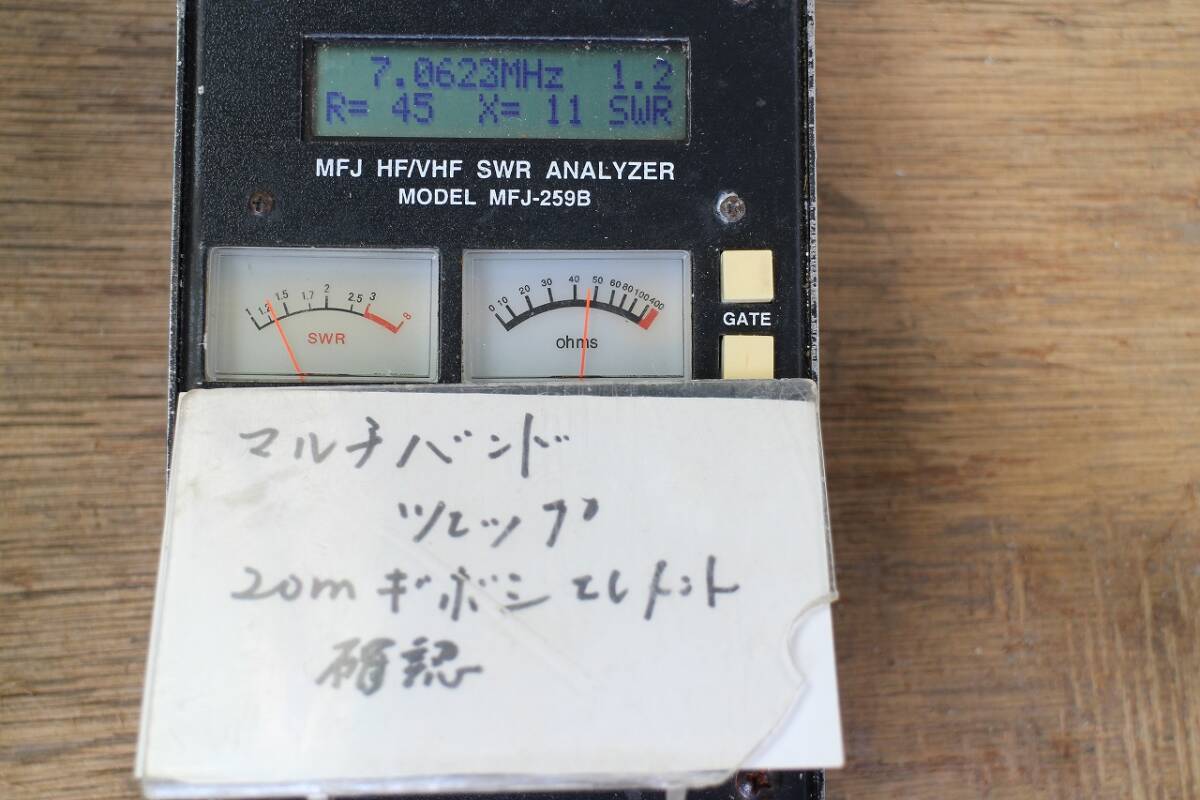 7.0623MHz 1.2
R= 45 X= 11 SWR
MFJ HF/VHF SWR ANALYZER
MODEL MFJ-259B
1 1.2 1.5 1.7 2 2.5 3 8
SWR
0 10 20 30 40 50 60 80 100 400
ohms
GATE
マルチバンド
ツェップ
20mギボシエレメント
確認